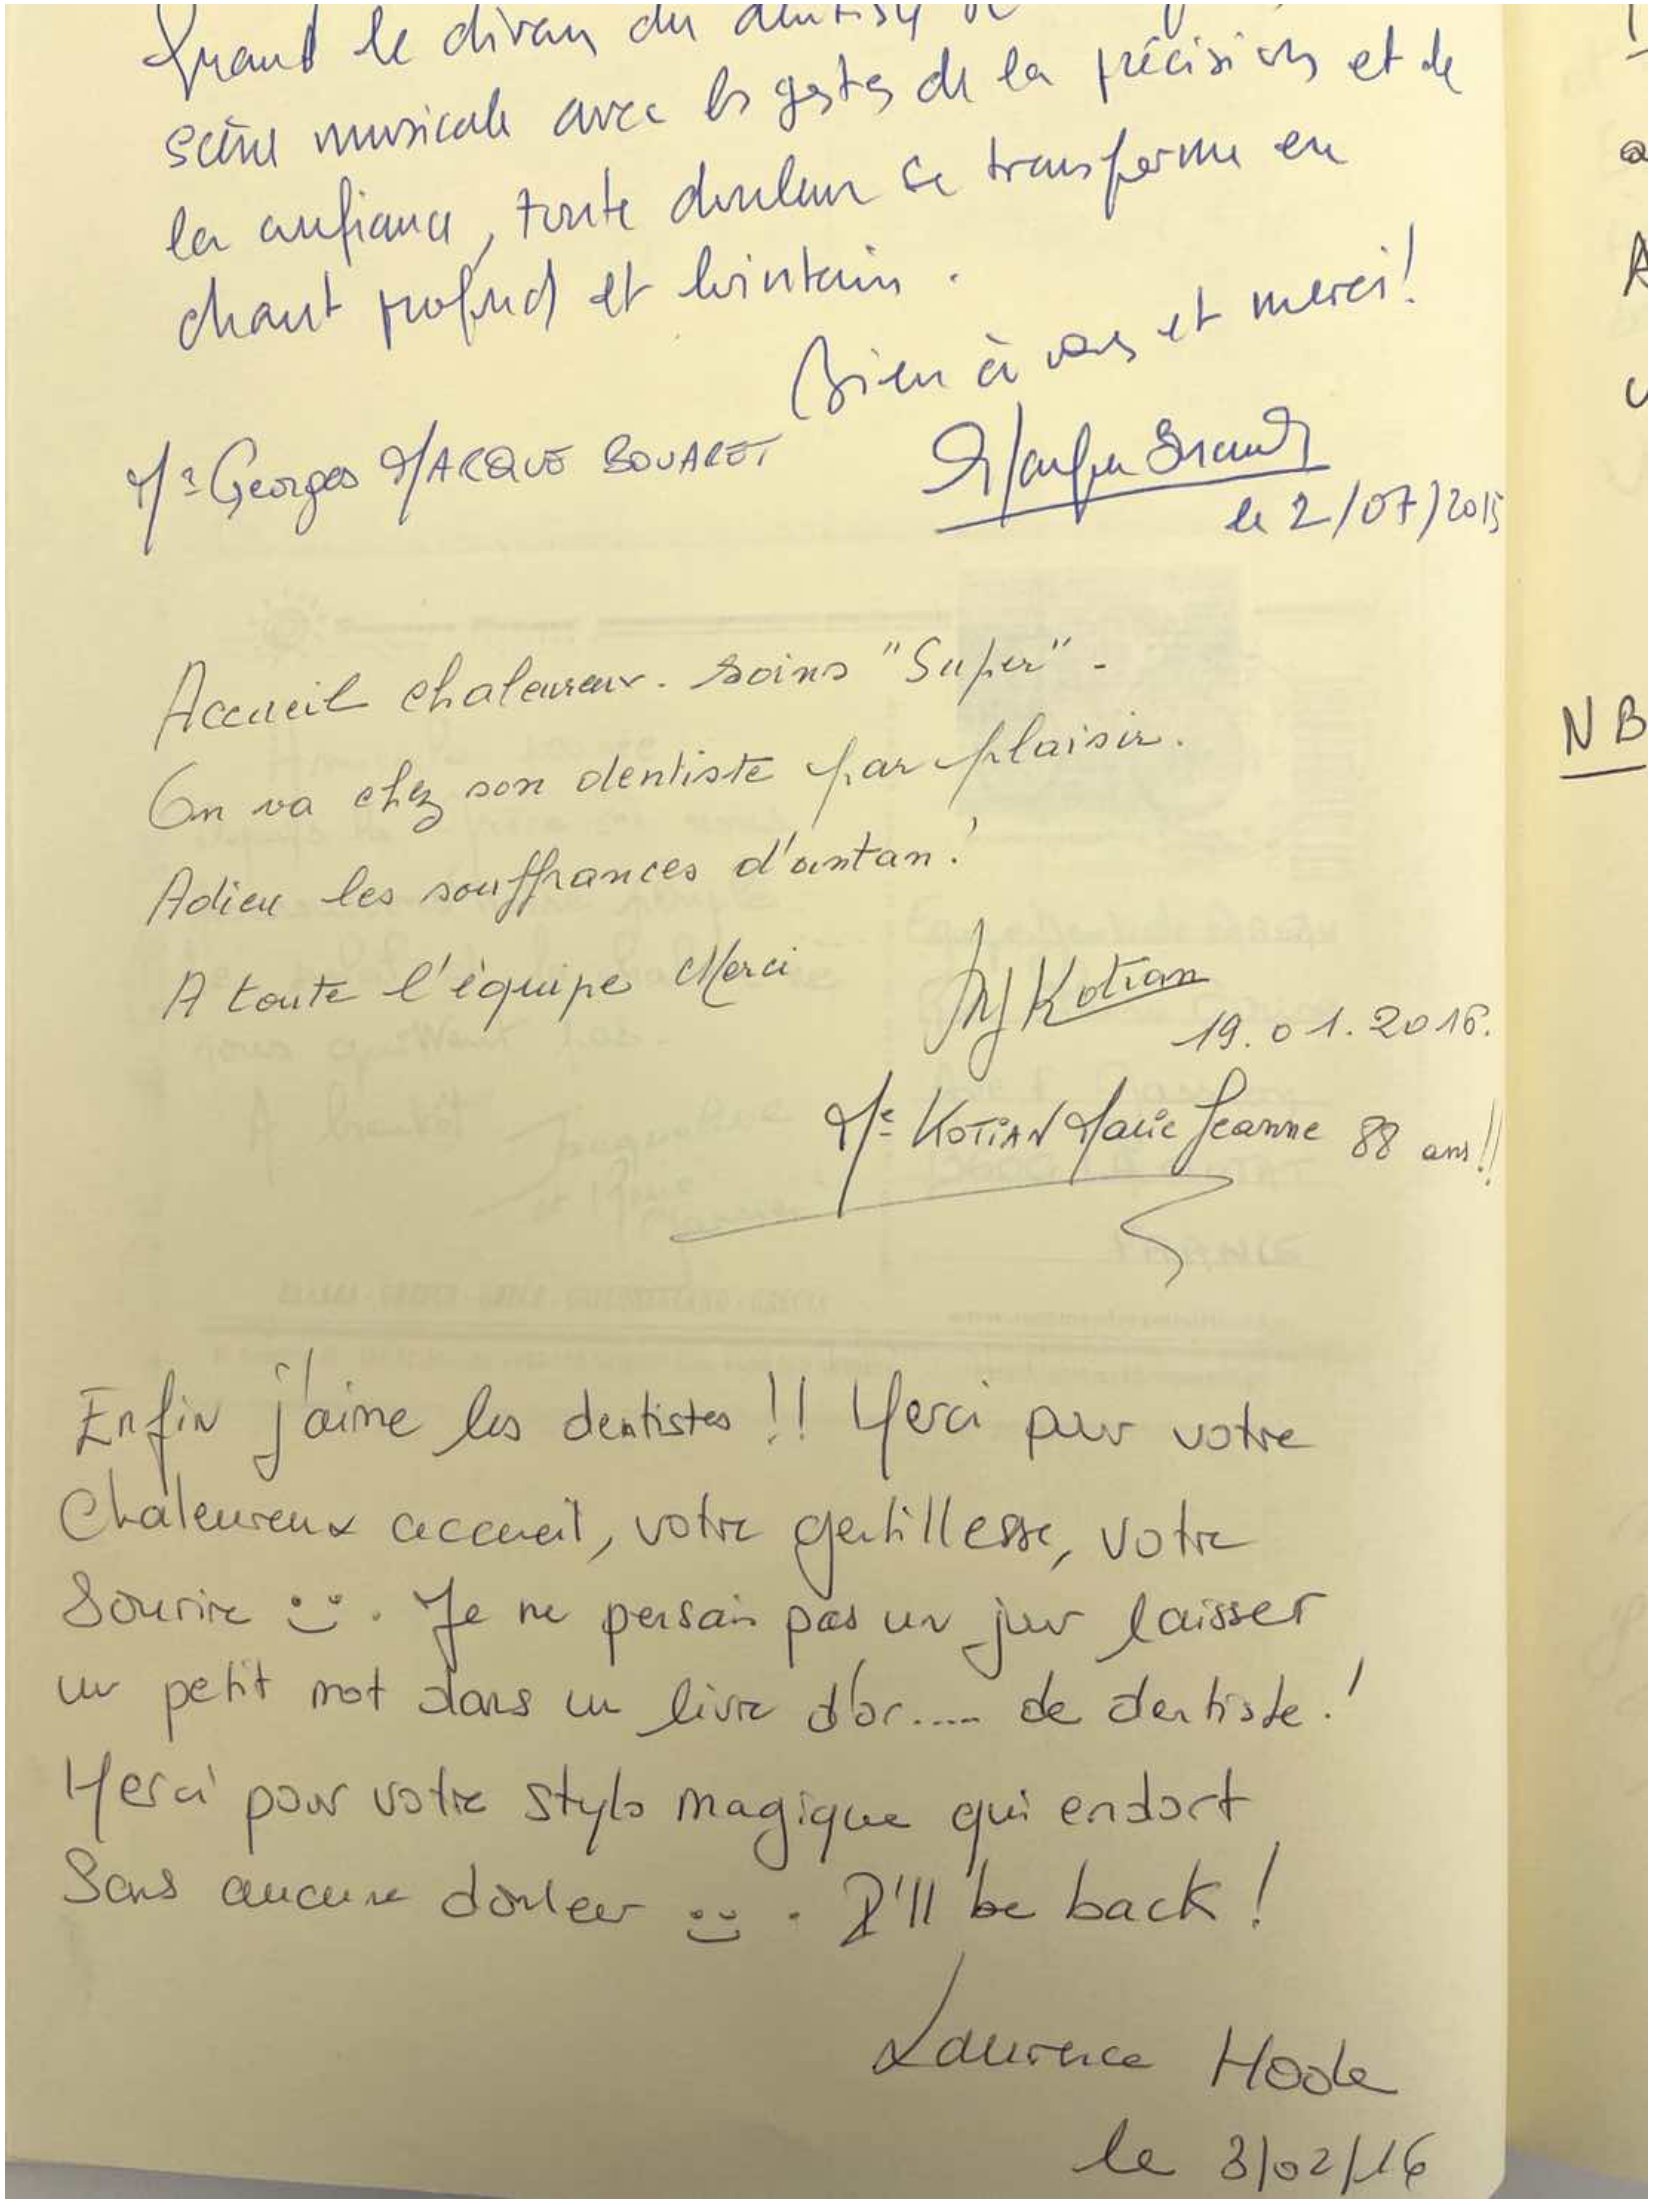 Quand le divan du dentiste
scène musicale avec les gestes de la précision et de
la confiance, toute douleur se transforme en
chant profond et lointain.
Bien à vous et merci!
Mr Georges MACQUE BOUARET
le 2/07/2015
Accueil chaleureux. soins "Super" -
On va chez son dentiste par plaisir.
Adieu les souffrances d'antan!
A toute l'équipe Merci
MJ Kotian
19.01.2016.
Me KOTIAN Marie Jeanne 88 ans!!
Enfin j'aime les dentistes!! Merci pour votre
Chaleureux accueil, votre gentillesse, votre
Sourire :). Je ne pensais pas un jour laisser
un petit mot dans un livre d'or..... de dentiste!
Merci pour votre stylo magique qui endort
Sans aucune douleur :). I'll be back!
Laurence
le 3/02/16
NB